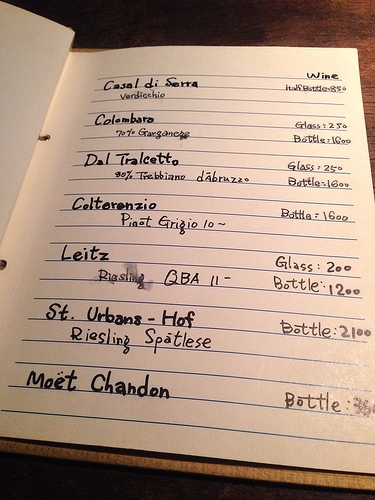 Wine
Casal di Serra Half Bottle: 850
Verdicchio
Colombara Glass: 250
70% Garganega Bottle: 1600
Dal Tralcetto Glass: 250
80% Trebbiano d'Abruzzo Bottle: 1600
Colterenzio Bottle: 1600
Pinot Grigio 10~
Leitz Glass: 200
Riesling QBA 11- Bottle: 1200
St. Urbans-Hof Bottle: 2100
Riesling Spätlese
Moët Chandon Bottle: